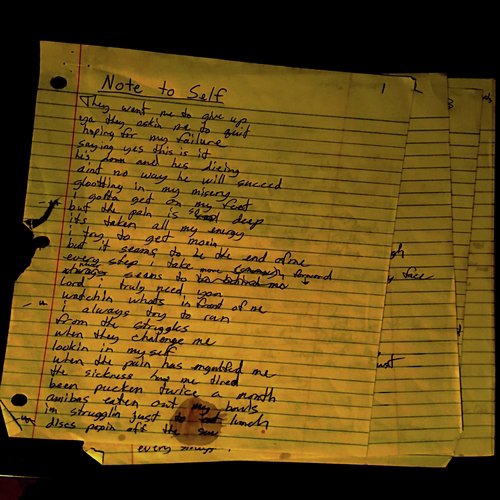 Note to Self
1
They want me to give up
ya they askin me to quit
hoping for my failure
saying yes this is it
he's down and hes dieing
aint no way he will succeed
gloatting in my misery
i gotta get on my feet
but the pain is so deep
its taken all my energy
i try to get movin
but it seems to be the end of me
every step i take move forward
seems to be behind me
Lord i truly need you
watchin whats in front of me
i always try to run
from the struggles
when they challenge me
lookin in myself
when the pain has engulfed me
the sickness has me dired
been pucken twice a month
eaten out my bowls
im strugglin just to lunch
discs popin off the
every
face